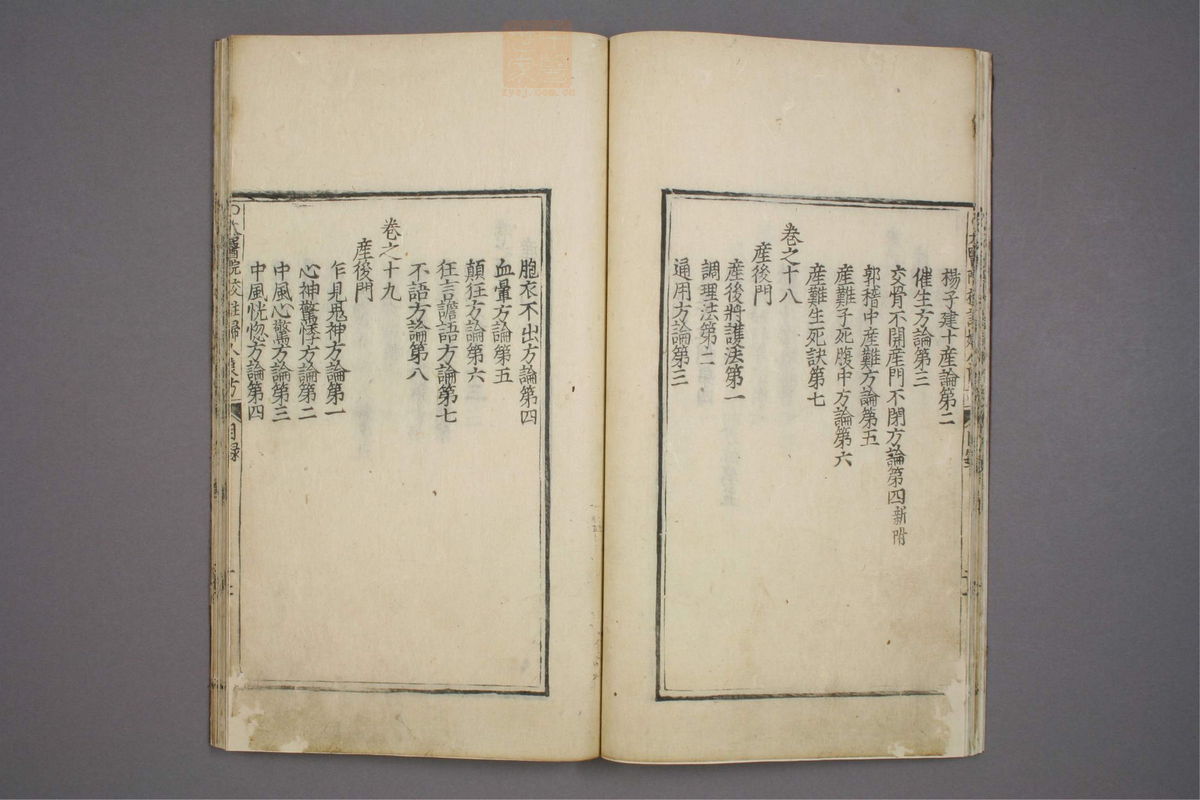 楊子建十産論第二
催生方論第三
交骨不開産門不閉方論第四新附
郭稽中産難方論第五
産難子死腹中方論第六
産難生死訣第七
卷之十八
産後門
産後將護法第一
調理法第二
通用方論第三
胞衣不出方論第四
血暈方論第五
顛狂方論第六
狂言譫語方論第七
不語方論第八
卷之十九
産後門
乍見鬼神方論第一
心神驚悸方論第二
中風心驚方論第三
中風恍惚方論第四
太醫院校註婦人良方
目録